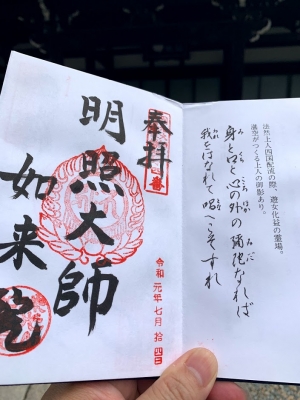 法然上人四国配流の際、遊女化益の霊場。
湛空がつくる上人の御影あり。
身と口と心の外の弥陀なれば
我をはなれて唱へこそすれ
奉拝
番
明照大師
如来院
令和元年七月拾四日